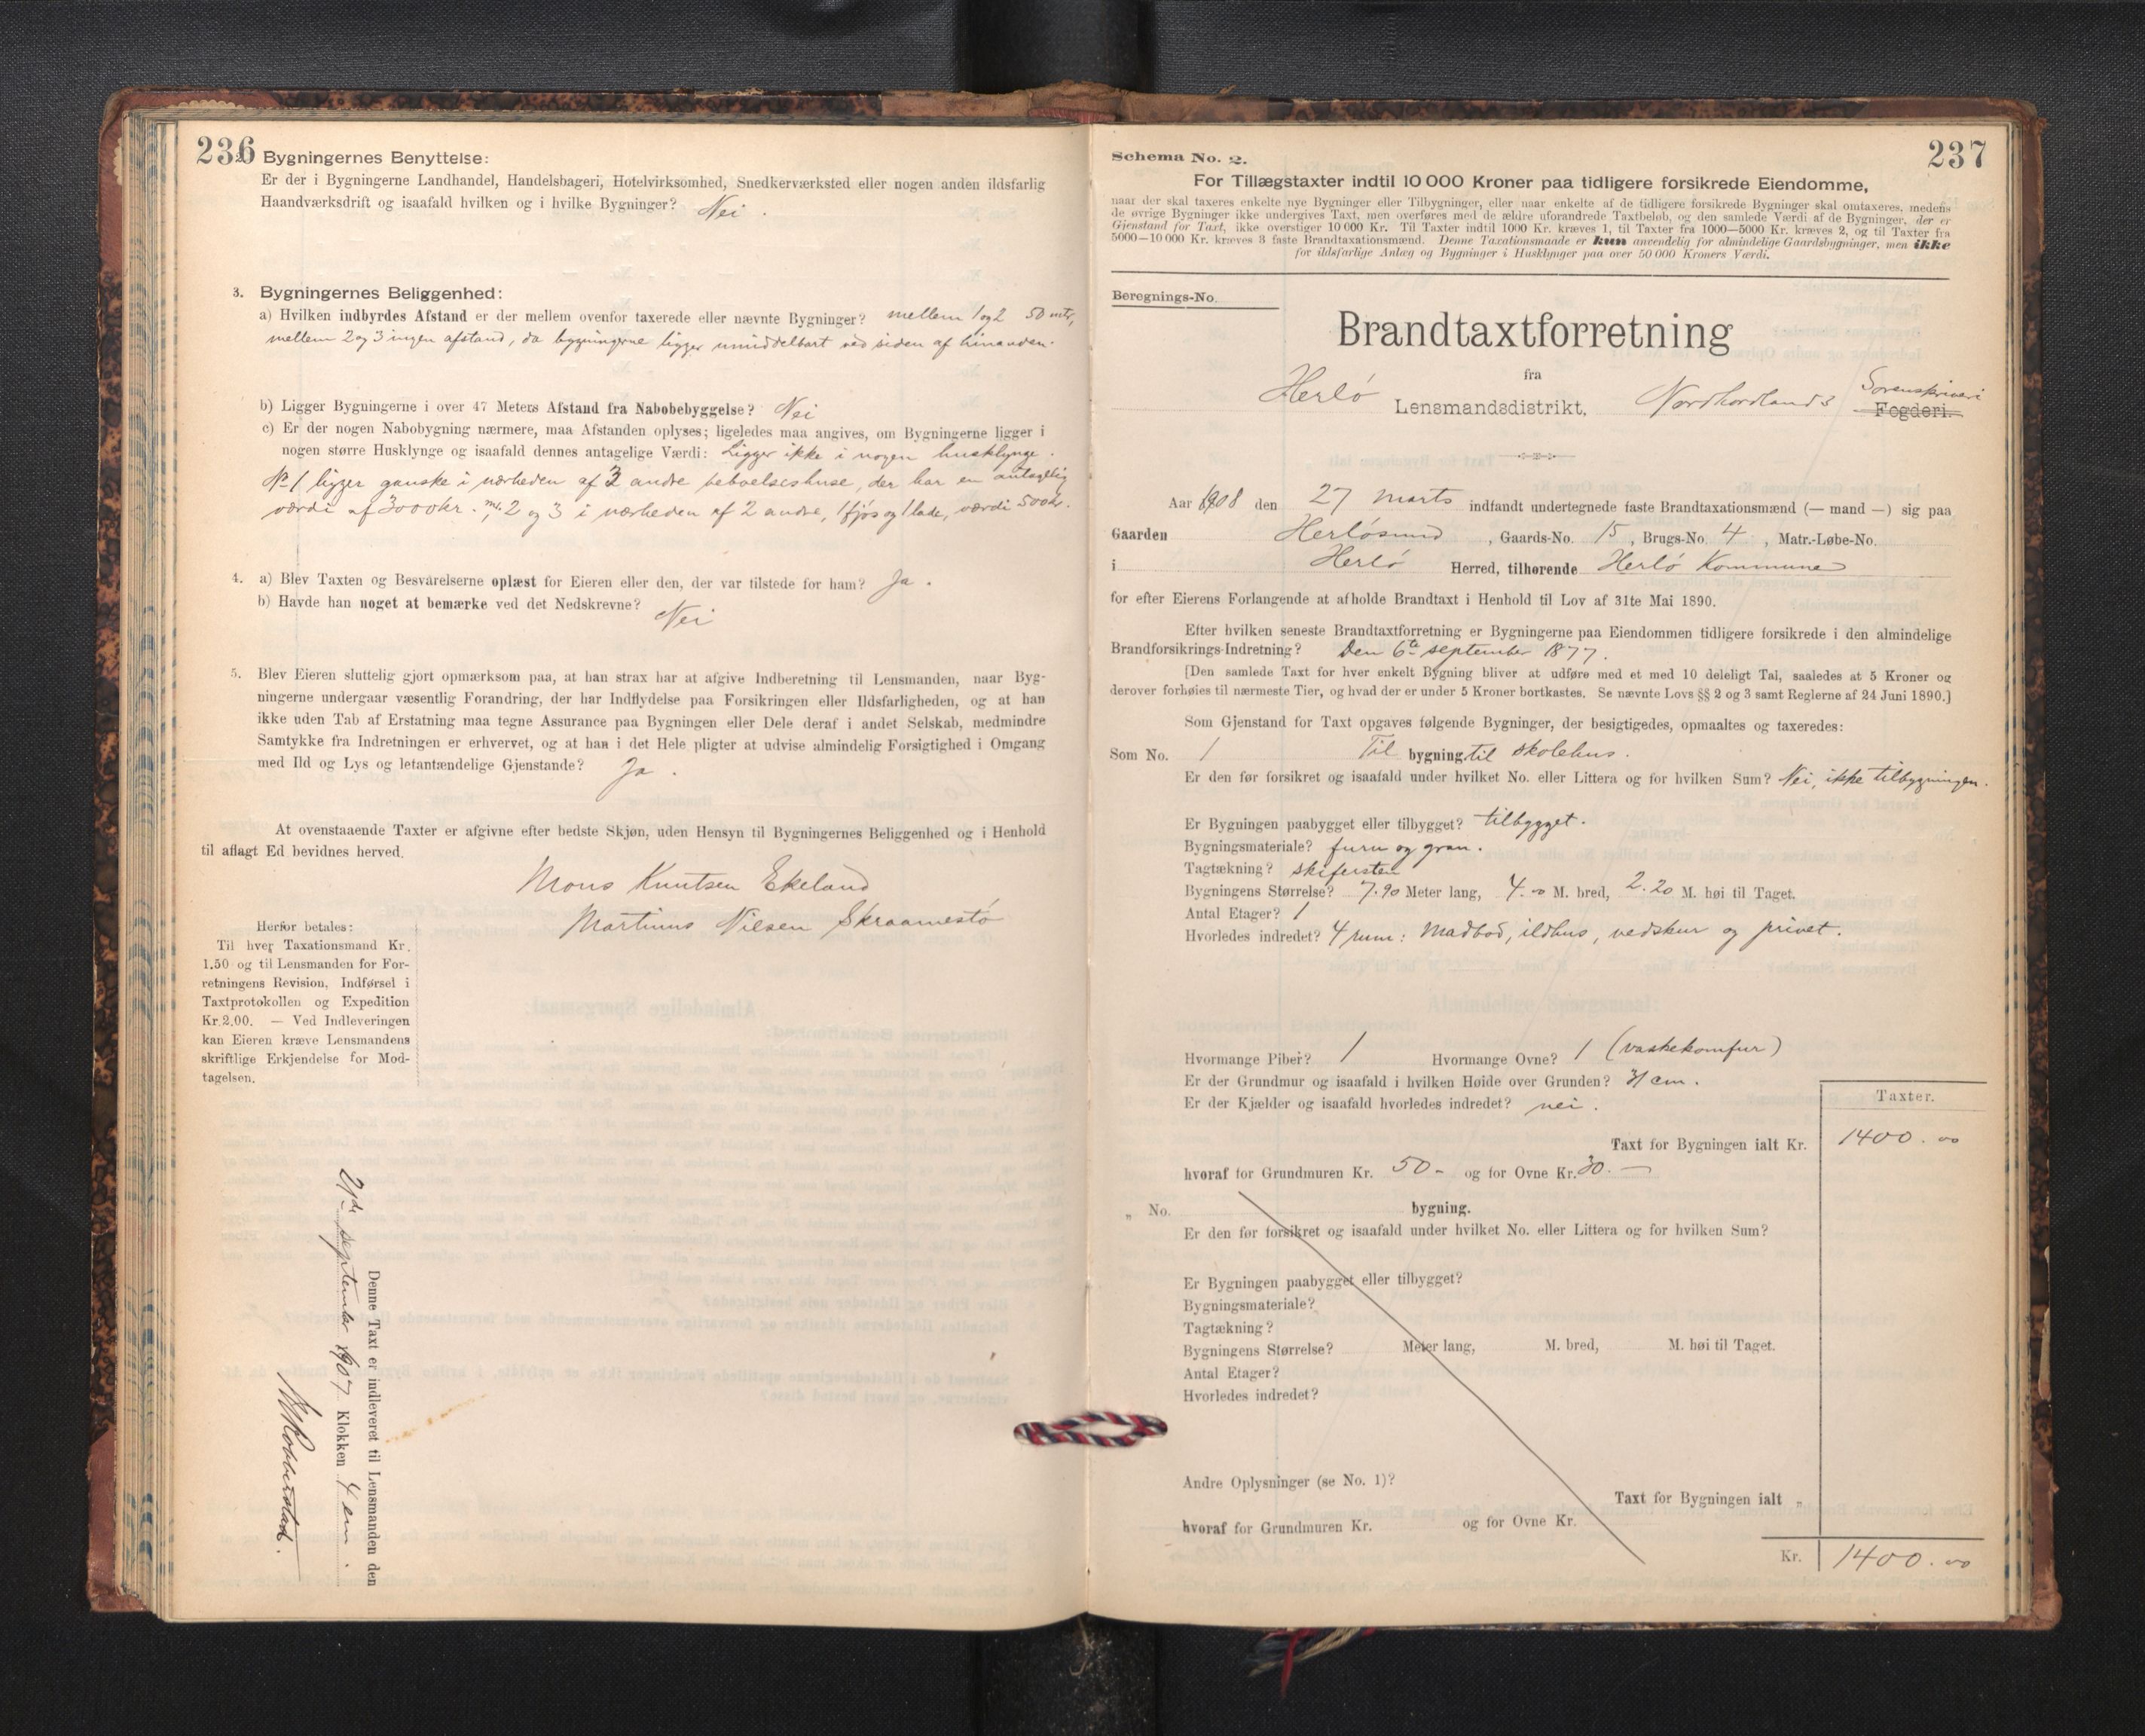 236
2. Bygningernes Benyttelse:
Er der i Bygningerne Landhandel, Handelsbageri, Hotelvirksomhed, Snedkerværksted eller nogen anden ildsfarlig
Haandværksdrift og isaafald hvilken og i hvilke Bygninger? Nei.
3. Bygningernes Beliggenhed:
a) Hvilken indbyrdes Afstand er der mellem ovenfor taxerede eller nævnte Bygninger? mellem 1 og 2 50 mtr,
mellem 2 og 3 ingen afstand, da bygningerne ligger umiddelbart ved siden af hinanden.
b) Ligger Bygningerne i over 47 Meters Afstand fra Nabobebyggelse? Nei
c) Er der nogen Nabobygning nærmere, maa Afstanden oplyses; ligeledes maa angives, om Bygningerne ligger i
nogen større Husklynge og isaafald dennes antagelige Værdi: Ligger ikke i nogen husklynge.
No 1 ligger ganske i nærheden af 3 andre beboelseshuse, der har en antagelig
værdi af 3000 kr. 2 og 3 i nærheden af 2 andre, 1 fjøs og 1 lade, værdi 500 kr.
4. a) Blev Taxten og Besvarelserne oplæst for Eieren eller den, der var tilstede for ham? Ja.
b) Havde han noget at bemærke ved det Nedskrevne? Nei
5. Blev Eieren sluttelig gjort opmærksom paa, at han strax har at afgive Indberetning til Lensmanden, naar Byg-
ningerne undergaar væsentlig Forandring, der har Indflydelse paa Forsikringen eller Ildsfarligheden, og at han
ikke uden Tab af Erstatning maa tegne Assurance paa Bygningen eller Dele deraf i andet Selskab, medmindre
Samtykke fra Indretningen er erhvervet, og at han i det Hele pligter at udvise almindelig Forsigtighed i Omgang
med Ild og Lys og letantændelige Gjenstande? Ja.
At ovenstaaende Taxter er afgivne efter bedste Skjøn, uden Hensyn til Bygningernes Beliggenhed og i Henhold
til aflagt Ed bevidnes herved.
Mons Knutsen Ekeland
Martinus Nilsen Skraamestø
Herfor betales:
Til hver Taxationsmand Kr.
1.50 og til Lensmanden for For-
retningens Revision, Indførsel i
Taxtprotokollen og Expedition
Kr. 2.00. — Ved Indleveringen
kan Eieren kræve Lensmandens
skriftlige Erkjendelse for Mod-
tagelsen.
Denne Taxt er indleveret til Lensmanden den
21de september 1907 Klokken 4 em.
237
Schema No. 2.
For Tillægstaxter indtil 10 000 Kroner paa tidligere forsikrede Eiendomme,
naar der skal taxeres enkelte nye Bygninger eller Tilbygninger, eller naar enkelte af de tidligere forsikrede Bygninger skal omtaxeres, medens
de øvrige Bygninger ikke undergives Taxt, men overføres med de ældre uforandrede Taxtbeløb, og den samlede Værdi af de Bygninger, der er
Gjenstand for Taxt, ikke overstiger 10 000 Kr. Til Taxter indtil 1000 Kr. kræves 1, til Taxter fra 1000—5000 Kr. kræves 2, og til Taxter fra
5000—10 000 Kr. kræves 3 faste Brandtaxationsmænd. Denne Taxationsmaade er kun anvendelig for almindelige Gaardsbygninger, men ikke
for ildsfarlige Anlæg og Bygninger i Husklynger paa over 50 000 Kroners Værdi.
Beregnings-No.
Brandtaxtforretning
fra
Herlø Lensmandsdistrikt, Nordhordlands Sorenskriveri Fogderi.
Aar 1908 den 27 marts indfandt undertegnede faste Brandtaxationsmænd (— mand —) sig paa
Gaarden Herløsund, Gaards-No. 15, Brugs-No. 4, Matr.-Løbe-No.
i Herlø Herred, tilhørende Herlø Kommune
for efter Eierens Forlangende at afholde Brandtaxt i Henhold til Lov af 31te Mai 1890.
Efter hvilken seneste Brandtaxtforretning er Bygningerne paa Eiendommen tidligere forsikrede i den almindelige
Brandforsikrings-Indretning? Den 6te september 1877.
[Den samlede Taxt for hver enkelt Bygning bliver at udføre med et med 10 deleligt Tal, saaledes at 5 Kroner og
derover forhøies til nærmeste Tier, og hvad der er under 5 Kroner bortkastes. Se nævnte Lovs §§ 2 og 3 samt Reglerne af 24 Juni 1890.]
Som Gjenstand for Taxt opgaves følgende Bygninger, der besigtigedes, opmaaltes og taxeredes:
Som No. 1 Til bygning til skolehus.
Er den før forsikret og isaafald under hvilket No. eller Littera og for hvilken Sum? Nei, ikke tilbygningen.
Er Bygningen paabygget eller tilbygget? tilbygget.
Bygningsmateriale? furu og gran.
Tagtækning? skifersten
Bygningens Størrelse? 7.90 Meter lang, 4.00 M. bred, 2.20 M. høi til Taget.
Antal Etager? 1
Hvorledes indredet? 4 rum: Madbod, ildhus, vedskur og privet.
Hvormange Piber? 1 Hvormange Ovne? 1 (vaskekomfur)
Er der Grundmur og isaafald i hvilken Høide over Grunden? 31 cm.
Er der Kjælder og isaafald hvorledes indredet? nei.
Taxter.
Taxt for Bygningen ialt Kr. 1400.00
hvoraf for Grundmuren Kr. 50- og for Ovne Kr. 30.—
„ No. bygning.
Er den før forsikret og isaafald under hvilket No. eller Littera og for hvilken Sum?
Er Bygningen paabygget eller tilbygget?
Bygningsmateriale?
Tagtækning?
Bygningens Størrelse? Meter lang, M. bred, M. høi til Taget.
Antal Etager?
Hvorledes indredet?
Andre Oplysninger (se No. 1)?
Taxt for Bygningen ialt „
hvoraf for Grundmuren Kr. og for Ovne Kr.
Kr. 1400.00